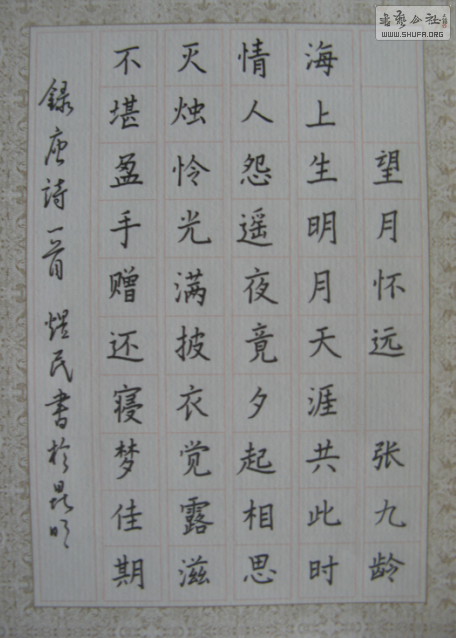 望月怀远 张九龄
海上生明月天涯共此时
情人怨遥夜竟夕起相思
灭烛怜光满披衣觉露滋
不堪盈手赠还寝梦佳期
録唐诗一首 煜民书于昆明
书艺公社
WWW.SHUFA.ORG